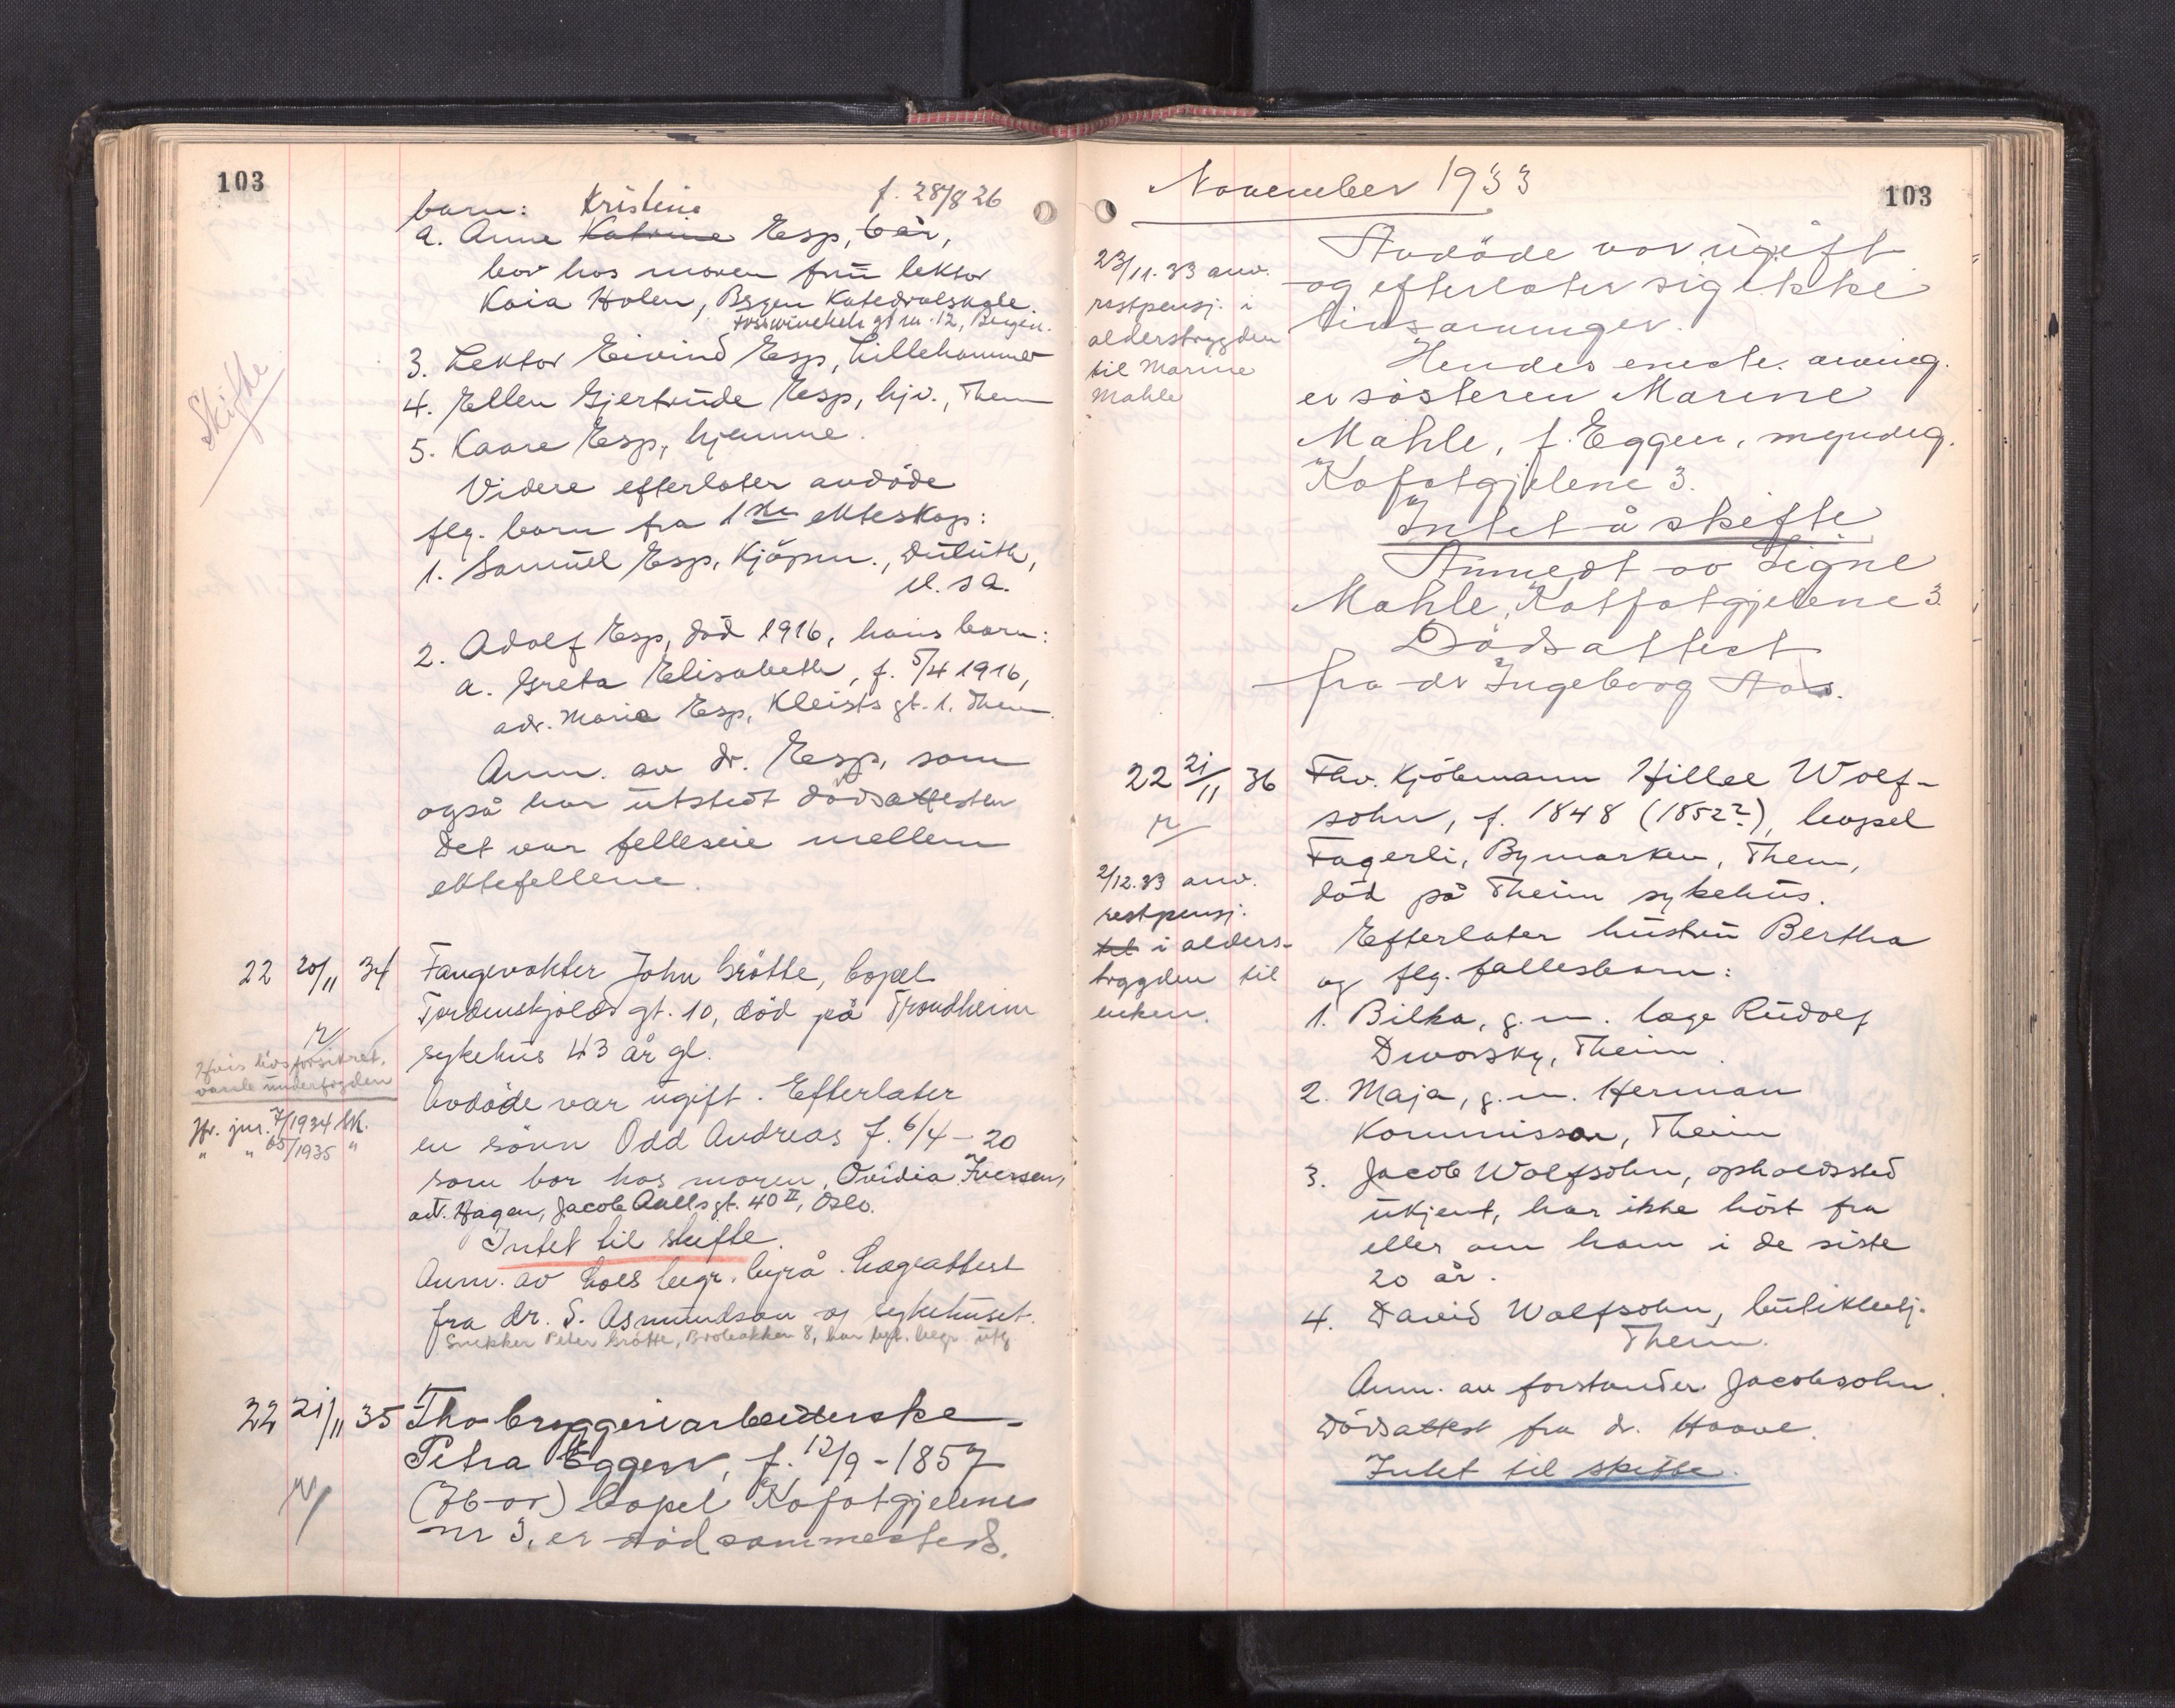 103
barn: Kristine f. 28/8 26
a. Anne Katrine Esp, 6 år,
bor hos moren fru lektor
Kaia Holen, Bergen Katedralskole
gt nr. 12, Bergen.
3. Lektor Eivind Esp, Lillehammer
4. Ellen Gjertrude Esp, hjv., Them
5. Kaare Esp, hjemme.
Skifte
Videre efterlater avdöde
flg. barn fra 1ste ekteskap:
1. Samuel Esp, Kjöpm., Duluth,
U.S.A.
2. Adolf Esp, död 1916, hans barn:
a. Greta Elisabeth, f. 5/4 1916,
adr. Maria Esp, Kleists gt. 1. Them
Anm. av dr. Esp, som
også har utstedt dödsattesten
Det var felleseie mellem
ektefellene.
22 20/11 34 Fangevokter John Grötte, bopel
Tordenskjolds gt. 10, död på Trondheim
sykehus 43 år gl.
Hvis livsforsikret,
varsle underfogden
Avdöde var ugift. Efterlater
Jfr. jnr. 7/1934 Sk.
" " 65/1935 "
en sönn Odd Andreas f. 6/4 - 20
som bor hos moren, Ovidia Iversen,
adr. Hagen, Jacob Aalls gt. 40 II, Oslo.
Intet til skifte.
Anm. av Hoels begr. byrå. Lægeattest
fra dr. S. Asmundson og sykehuset.
Snekker Peter Grötte, Brobakken 8, har bet. begr. utg
22 21/11 35 Thv bryggeriarbeiderske
Petra Eggen, f. 12/9 - 1857
(76 år) bopel Kofotgjelene
nr 3, er död sammesteds.
November 1933
103
Avdöde var ugift
og efterlater sig ikke
livsarvinger.
23/11.33 anv.
restpensj. i
alderstrygden
til Marine
Mahle
Hendes eneste arving.
er sösteren Marine
Mahle, f. Eggen, myndig.
Kofotgjelene 3.
Intet å skifte
Anmedt av Signe
Mahle, Kotfotgjelene 3.
Dödsattest
fra dr Ingeborg Aas.
22 21/11 36 Fhv. Kjöbmann Hillel Wolf-
sohn, f. 1848 (1852?), bopel
Fagerli, Bymarken, Them,
död på Theim sykehus.
2/12.33 anv.
restpensj.
til i alders-
trygden til
enken.
Efterlater hustru Bertha
og flg. fællesbarn:
1. Bilka, g.m. læge Rudolf
Dworsky, Theim.
2. Maja, g.m. Herman
Kommissar, Theim
3. Jacob Wolfsohn, opholdssted
ukjent, har ikke hört fra
eller om ham i de siste
20 år.
4. David Wolfsohn, butikkbetj.
Theim.
Anm. av forstander Jacobsohn.
Dödsattest fra dr. Haave.
Intet til skifte.